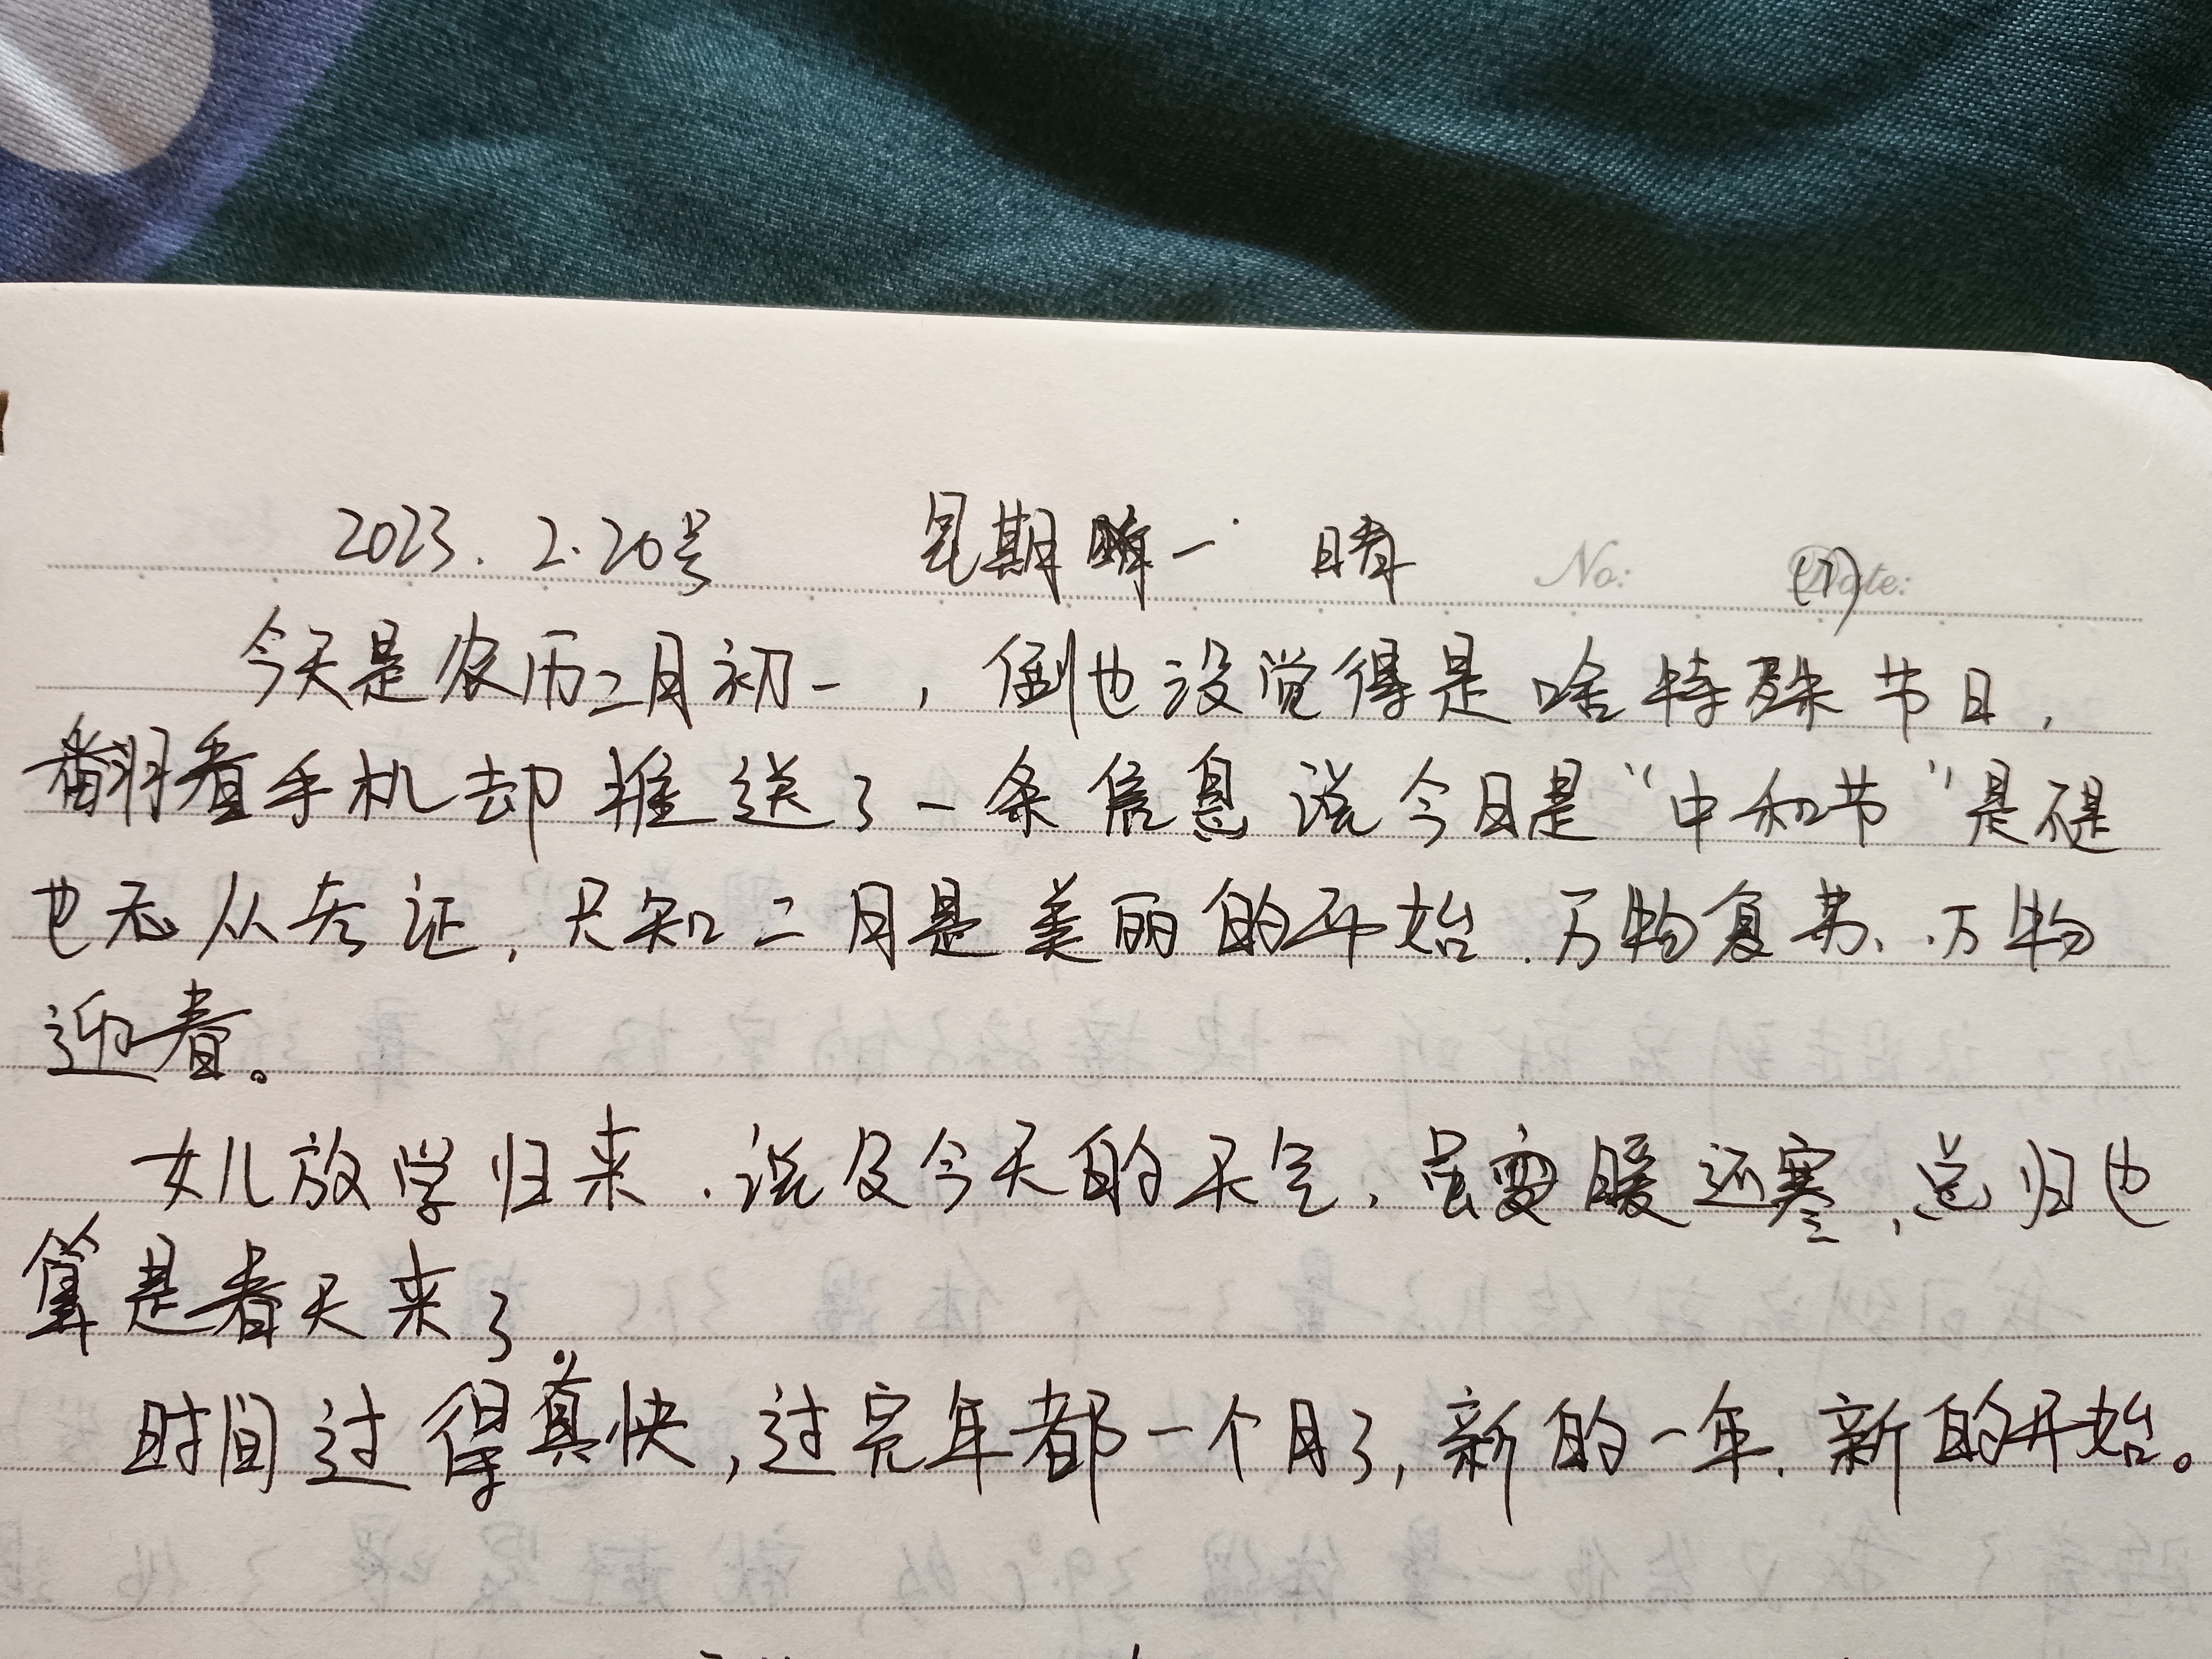 2023.2.20号 星期一 晴 No: (7) Date:
今天是农历二月初一,倒也没觉得是啥特殊节日,
翻看手机却推送了一条信息说今日是“中和节”是不是
也无从考证,只知二月是美丽的开始.万物复苏、万物
迎春。
女儿放学归来.说及今天的天气,虽变暖还寒,总归也
算是春天来了。
时间过得真快,过完年都一个月了,新的一年.新的开始。